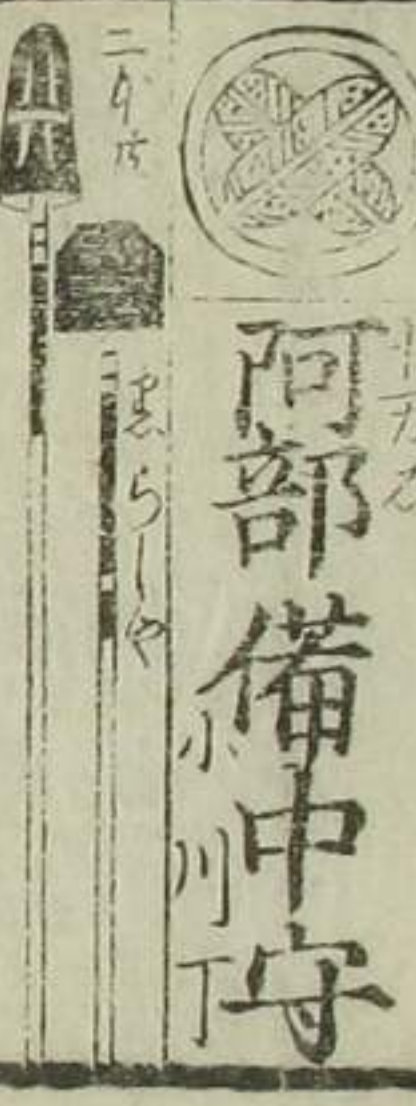 阿部備中守
小川丁
黒らしや